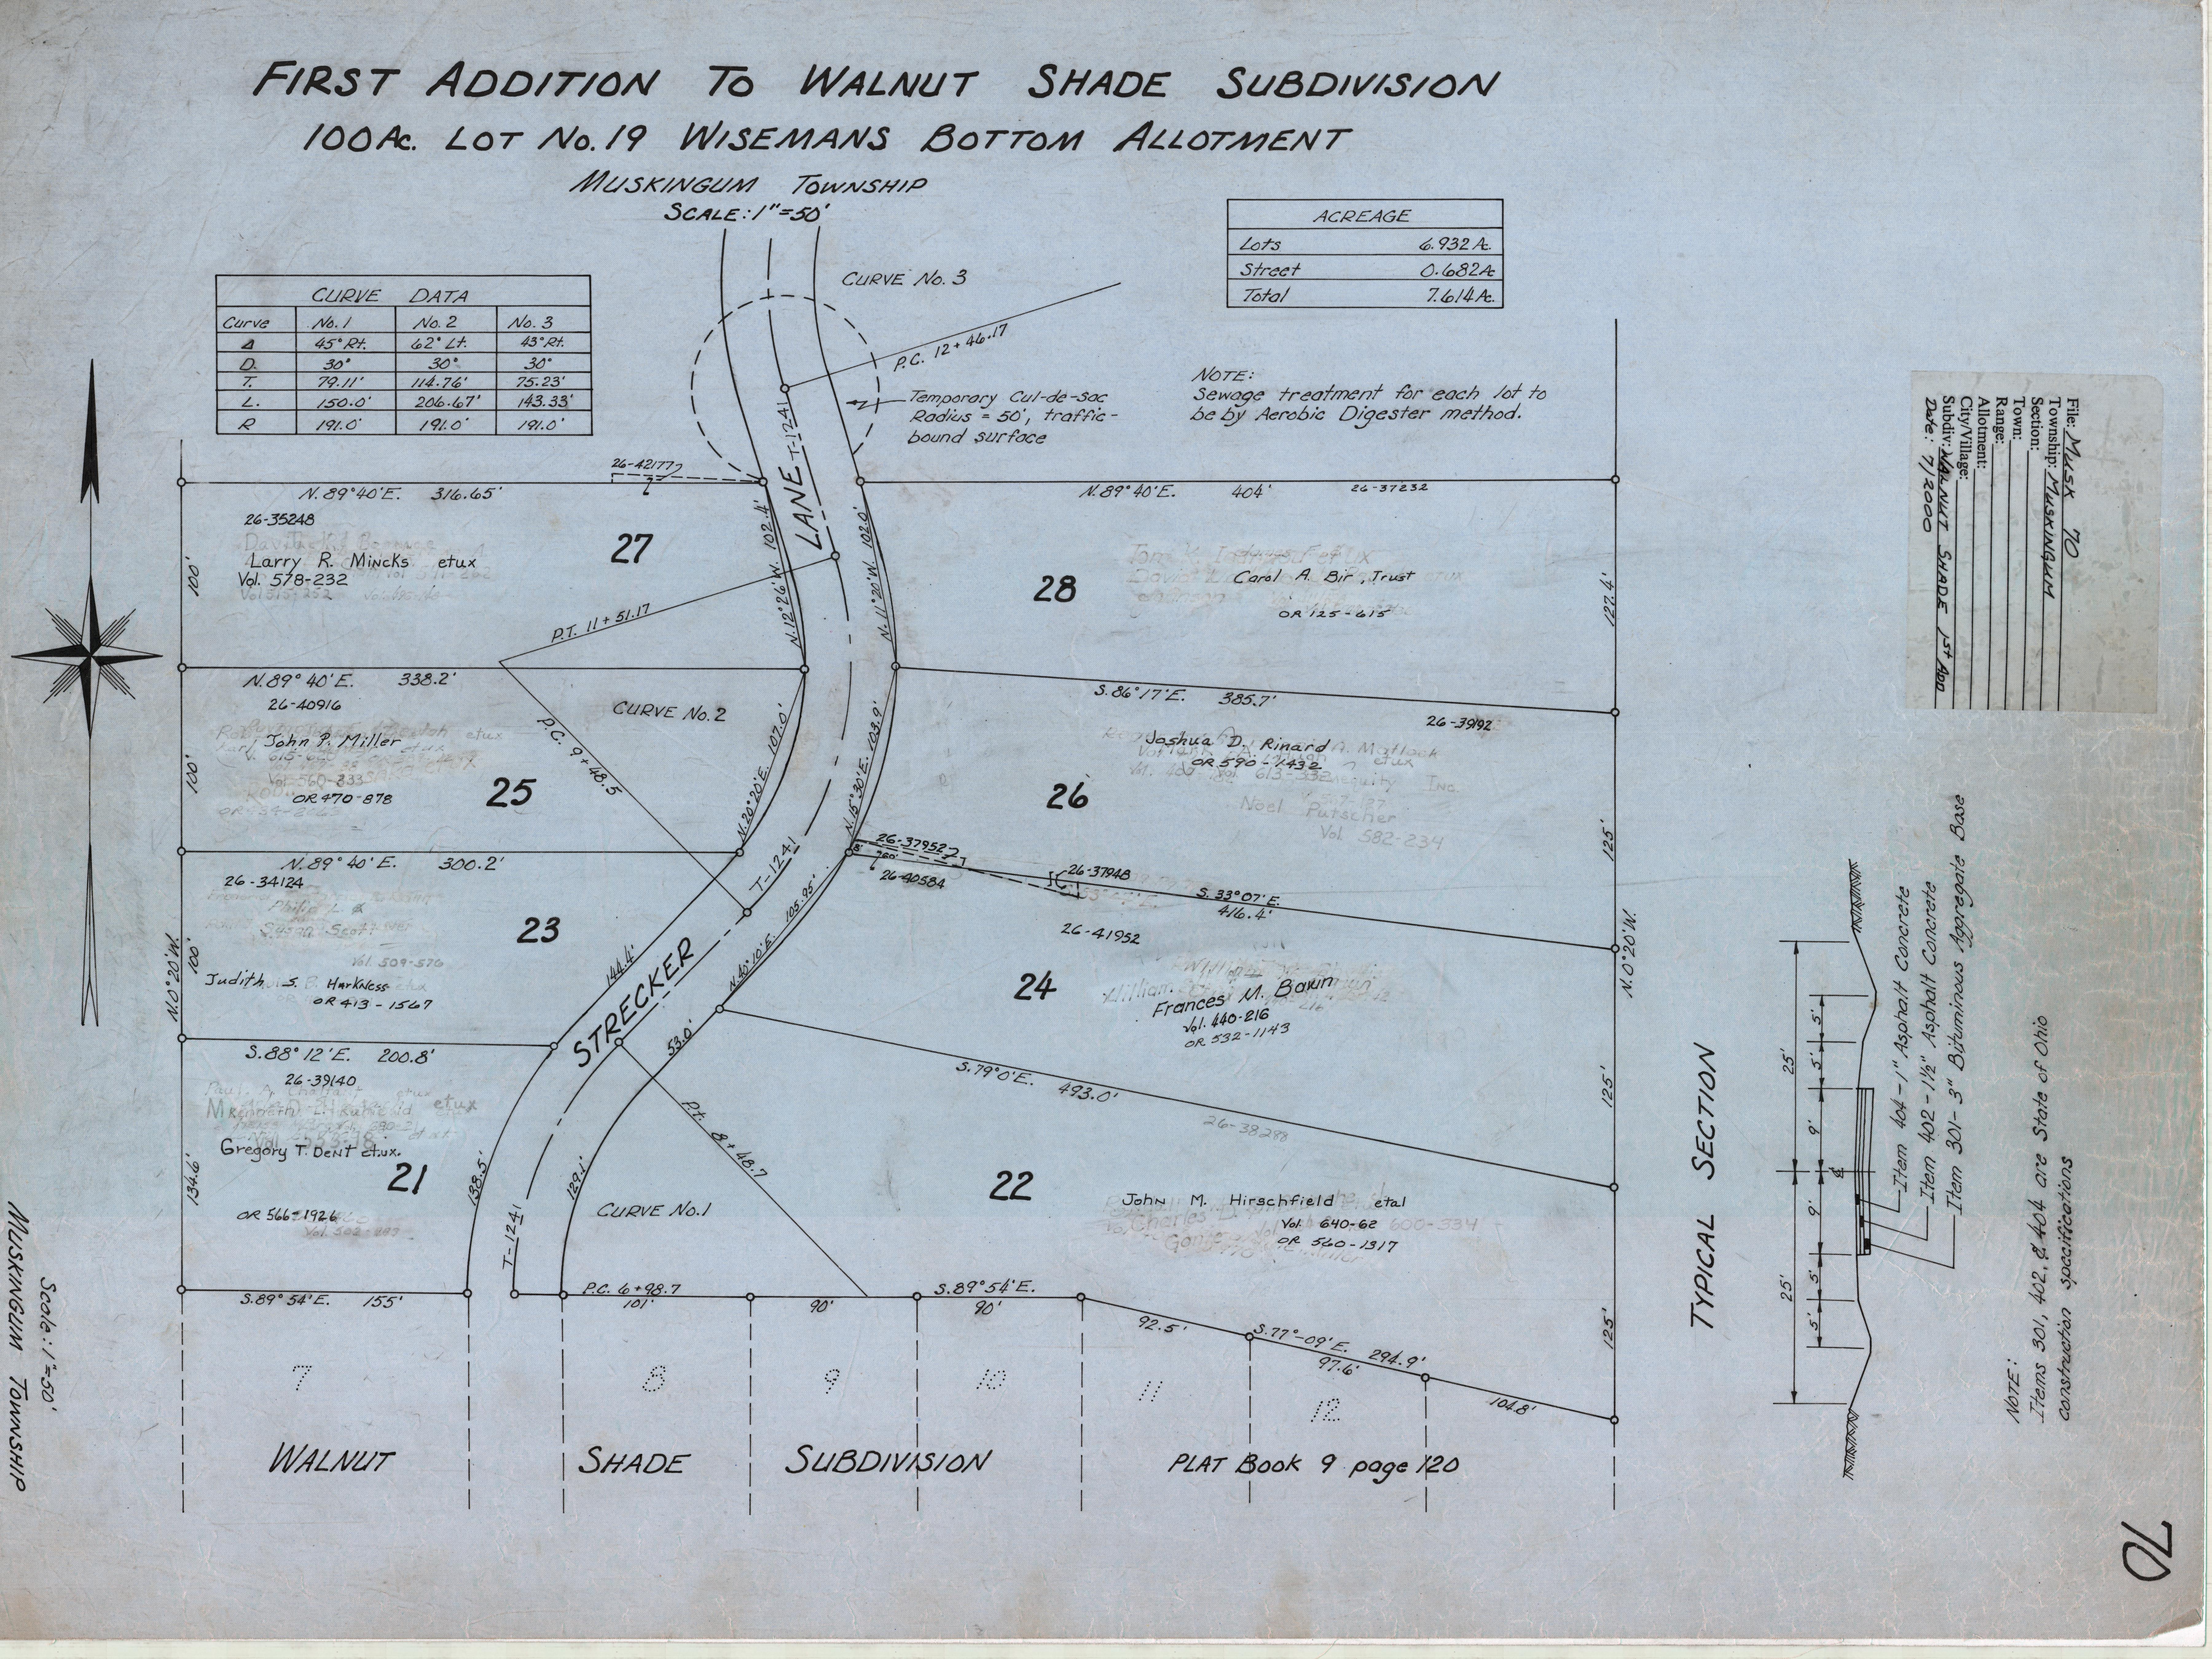 FIRST ADDITION TO WALNUT SHADE SUBDIVISION
100 Ac. LOT No. 19 WISEMANS BOTTOM ALLOTMENT
MUSKINGUM TOWNSHIP
SCALE: 1"=50'
ACREAGE
Lots 6.932 Ac.
Street 0.682 Ac
Total 7.614 Ac.
CURVE DATA
Curve No. 1 No. 2 No. 3
Δ 45° Rt. 62° Lt. 43° Rt.
D. 30° 30° 30°
T. 79.11' 114.76' 75.23'
L. 150.0' 206.67' 143.33'
R 191.0' 191.0' 191.0'
CURVE No. 3
P.C. 12+46.17
Temporary Cul-de-sac
Radius = 50', traffic-
bound surface
NOTE:
Sewage treatment for each lot to
be by Aerobic Digester method.
T-1241
LANE
26-42177
N. 89° 40' E. 316.65'
26-35248
Larry R. Mincks etux
Vol. 578-232
27
100'
N. 12° 26' W. 102.4'
N. 11° 20' W. 102.0'
P.T. 11+51.17
N. 89° 40' E. 404' 26-37232
28
Carol A. Bir, Trust
OR 125-615
127.4'
N. 89° 40' E. 338.2'
26-40916
John P. Miller
Vol. 560-333
OR 470-878
25
100'
CURVE No. 2
P.C. 9+48.5
N. 20° 20' E. 107.0'
N. 15° 30' E. 103.9'
S. 86° 17' E. 385.7'
26-39192
Joshua D. Rinard
OR 590-1432
Noel Putscher
Vol. 582-234
26
125'
N. 89° 40' E. 300.2'
26-34124
Vol. 509-576
Judith S. Harkness
OR 413-1567
23
N. 0° 20' W.
100'
144.4'
STRECKER
T-1241
N. 40° 10' E. 105.95'
53.0'
26-37952
26-40584
26-37948
S. 33° 07' E.
416.4'
26-41952
24
Frances M. Bawn
Vol. 440-216
OR 532-1143
N. 0° 20' W.
125'
S. 88° 12' E. 200.8'
26-39140
Gregory T. Dent et.ux.
21
OR 566-1926
134.6'
138.5'
129.1'
T-1241
CURVE No. 1
P.t. 8+48.7
S. 79° 0' E.
493.0'
26-38288
22
John M. Hirschfield etal
Vol. 640-62 600-334
OR 560-1317
125'
S. 89° 54' E. 155'
P.C. 6+98.7
101'
90'
S. 89° 54' E.
90'
92.5'
S. 77°-09' E. 294.9'
97.6'
104.8'
7
8
9
10
11
12
WALNUT SHADE SUBDIVISION PLAT Book 9 page 120
TYPICAL SECTION
25'
25'
5'
5'
9'
9'
5'
5'
℄
Item 404-1" Asphalt Concrete
Item 402-1½" Asphalt Concrete
Item 301-3" Bituminous Aggregate Base
NOTE:
Items 301, 402, & 404 are State of Ohio
construction specifications
File: MUSK 70
Township: MUSKINGUM
Section:
Town:
Range:
Allotment:
City/Village:
Subdiv: WALNUT SHADE 1st ADD
Date: 7/2000
Scale: 1"=50'
MUSKINGUM TOWNSHIP
70